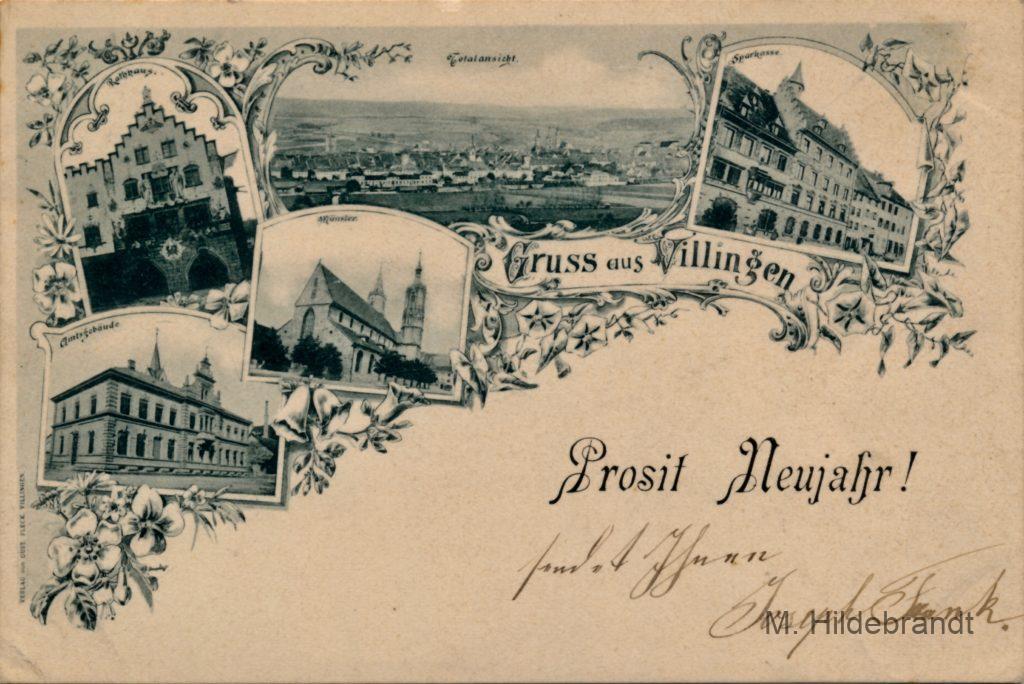 Rathhaus.
Totalansicht.
Sparkasse.
Münster.
Gruss aus Villingen
Amtsgebäude
Prosit Neujahr!
sendet Ihnen
Joseph Frank.
M. Hildebrandt
VERLAG von GUST. FLECK, VILLINGEN.